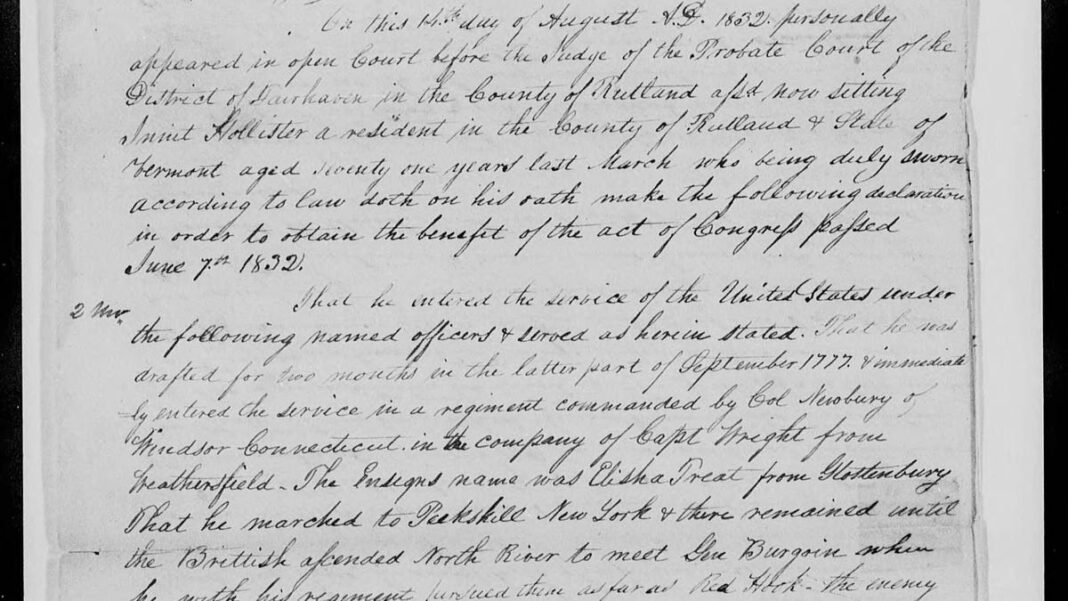 On this 14th day of August A.D. 1832. personally
appeared in open Court before the Judge of the Probate Court of the
District of Fairhaven in the County of Rutland afsd now sitting
Innit Hollister a resident in the County of Rutland & State of
Vermont aged seventy one years last March who being duly sworn
according to law doth on his oath make the following declaration
in order to obtain the benefit of the act of Congress passed
June 7th 1832.
2 Mo. That he entered the service of the United States under
the following named officers & served as herein stated. That he was
drafted for two months in the latter part of September 1777. & immediate
=ly entered the service in a regiment commanded by Col Newbury of
Windsor Connecticut. in the company of Capt Wright from
Weathersfield - The Ensigns name was Elisha Treat from Glottenbury
That he marched to Peekskill New York & there remained until
the Brittish ascended North River to meet Gen Burgoin when
he with his regiment pursued them as far as Red Hook - the enemy